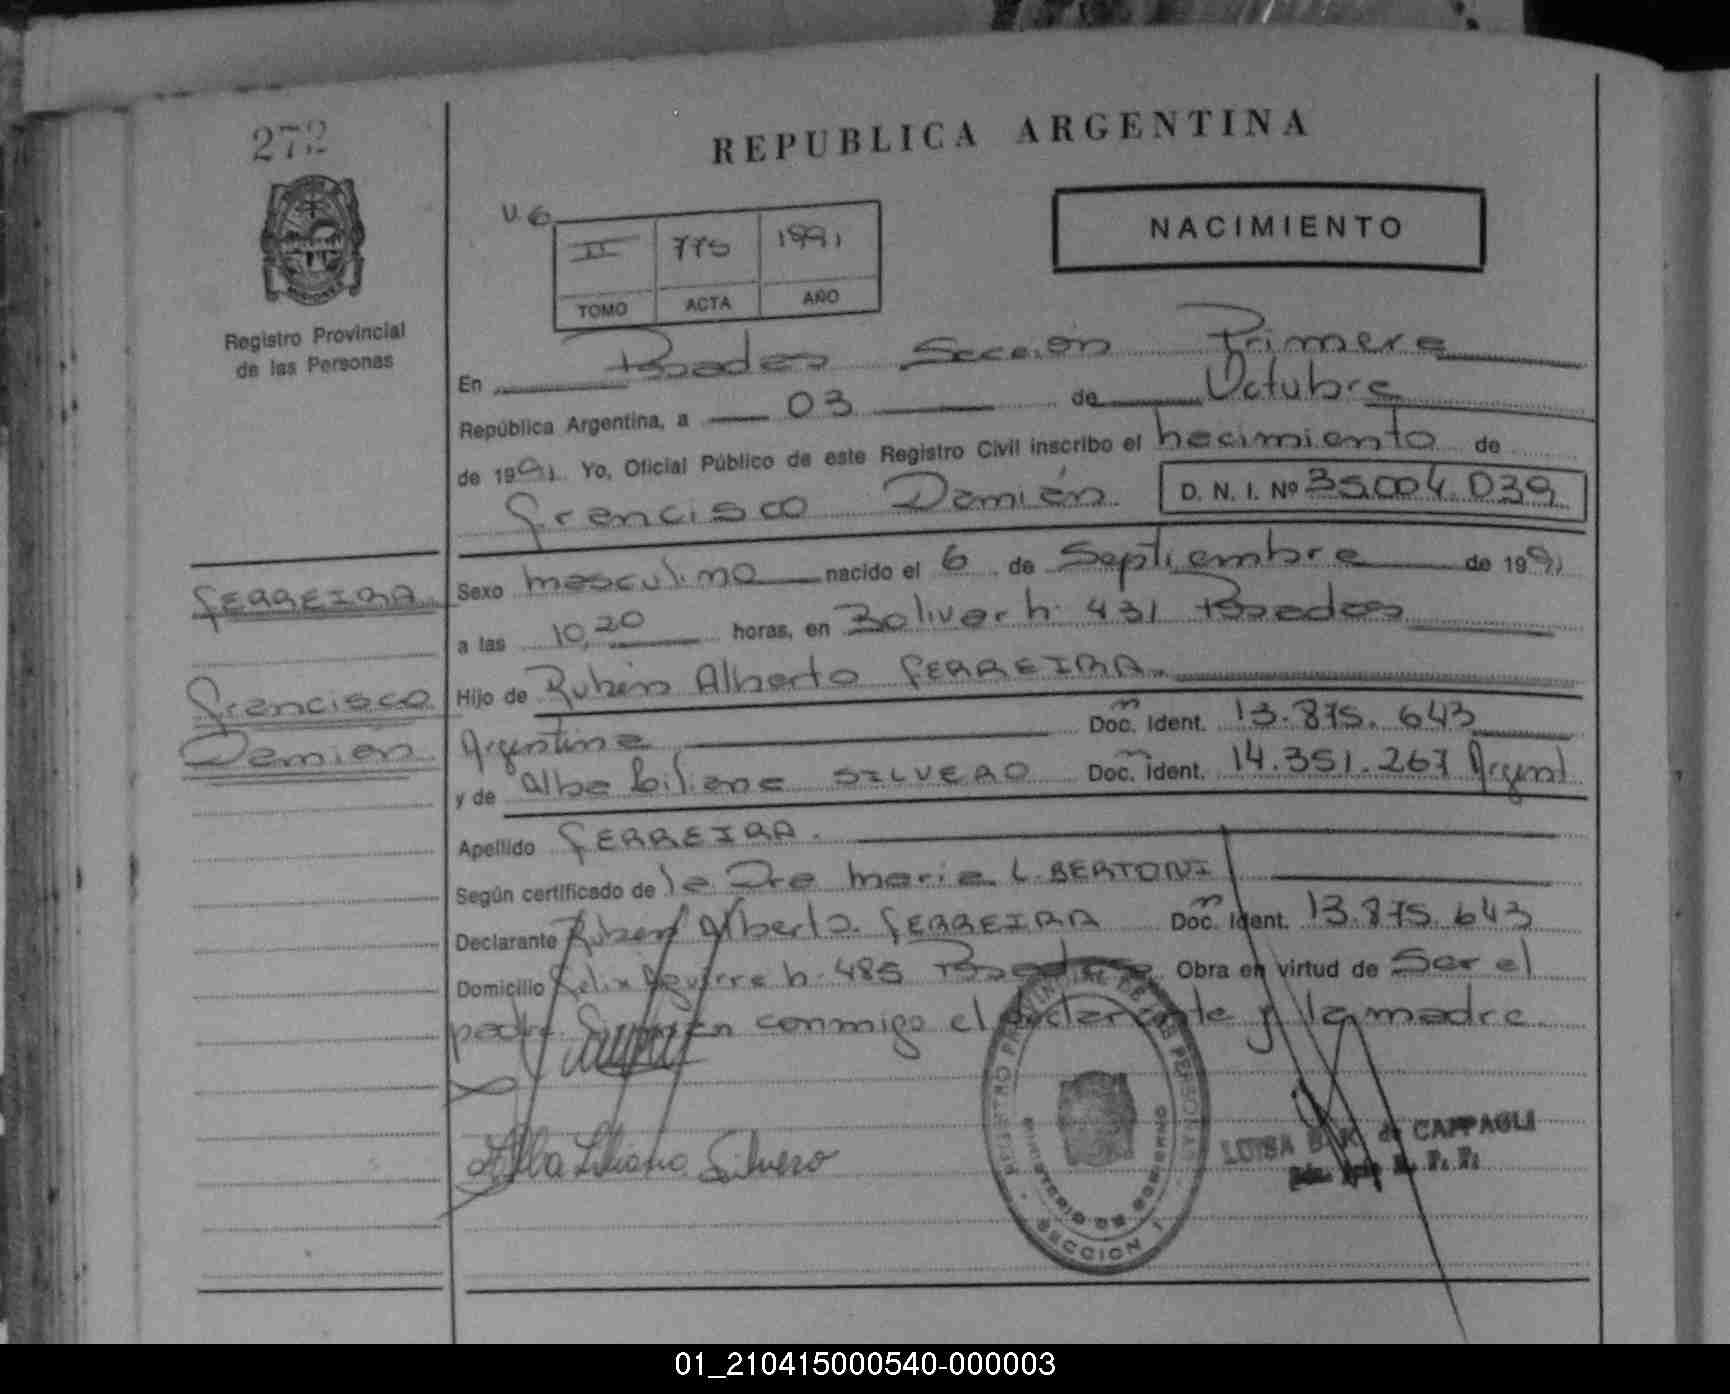 272
REPUBLICA ARGENTINA
NACIMIENTO
V. 6
II 775 1991
TOMO ACTA AÑO
Registro Provincial
de las Personas
En Posadas Sección Primera
República Argentina, a 03 de Octubre
de 1991. Yo, Oficial Público de este Registro Civil inscribo el nacimiento de
Francisco Damián D. N. I. Nº 35.004.039
FERREIRA
Sexo masculino nacido el 6 de Septiembre de 1991
a las 10,20 horas, en Bolivar n. 431 Posadas
Francisco
Damián
Hijo de Rubén Alberto FERREIRA.
Argentina Doc. Ident. 13.875.643
y de Alba Liliana SILVERO Doc. Ident. 14.351.267 Argent
Apellido FERREIRA.
Según certificado de la Dra Maria L. BERTONI
Declarante Ruben Alberto FERREIRA Doc. Ident. 13.875.643
Domicilio Felix Aguirre n. 485 Posadas Obra en virtud de Ser el
padre. Firman conmigo el declarante y la madre.
Alba Liliana Silvero
REGISTRO PROVINCIAL DE LAS PERSONAS
MINISTERIO DE GOBIERNO
SECCION 1
LUISA de CAPPAGLI
01_210415000540-000003